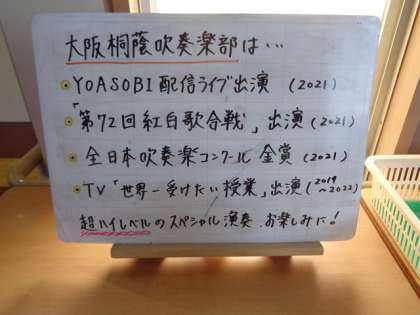 大阪桐蔭吹奏楽部は…
YOASOBI配信ライブ出演 (2021)
「第72回紅白歌合戦」出演(2021)
全日本吹奏楽コンクール 金賞 (2021)
TV「世界一受けたい授業」出演(2019～2022)
超ハイレベルのスペシャル演奏、お楽しみに!